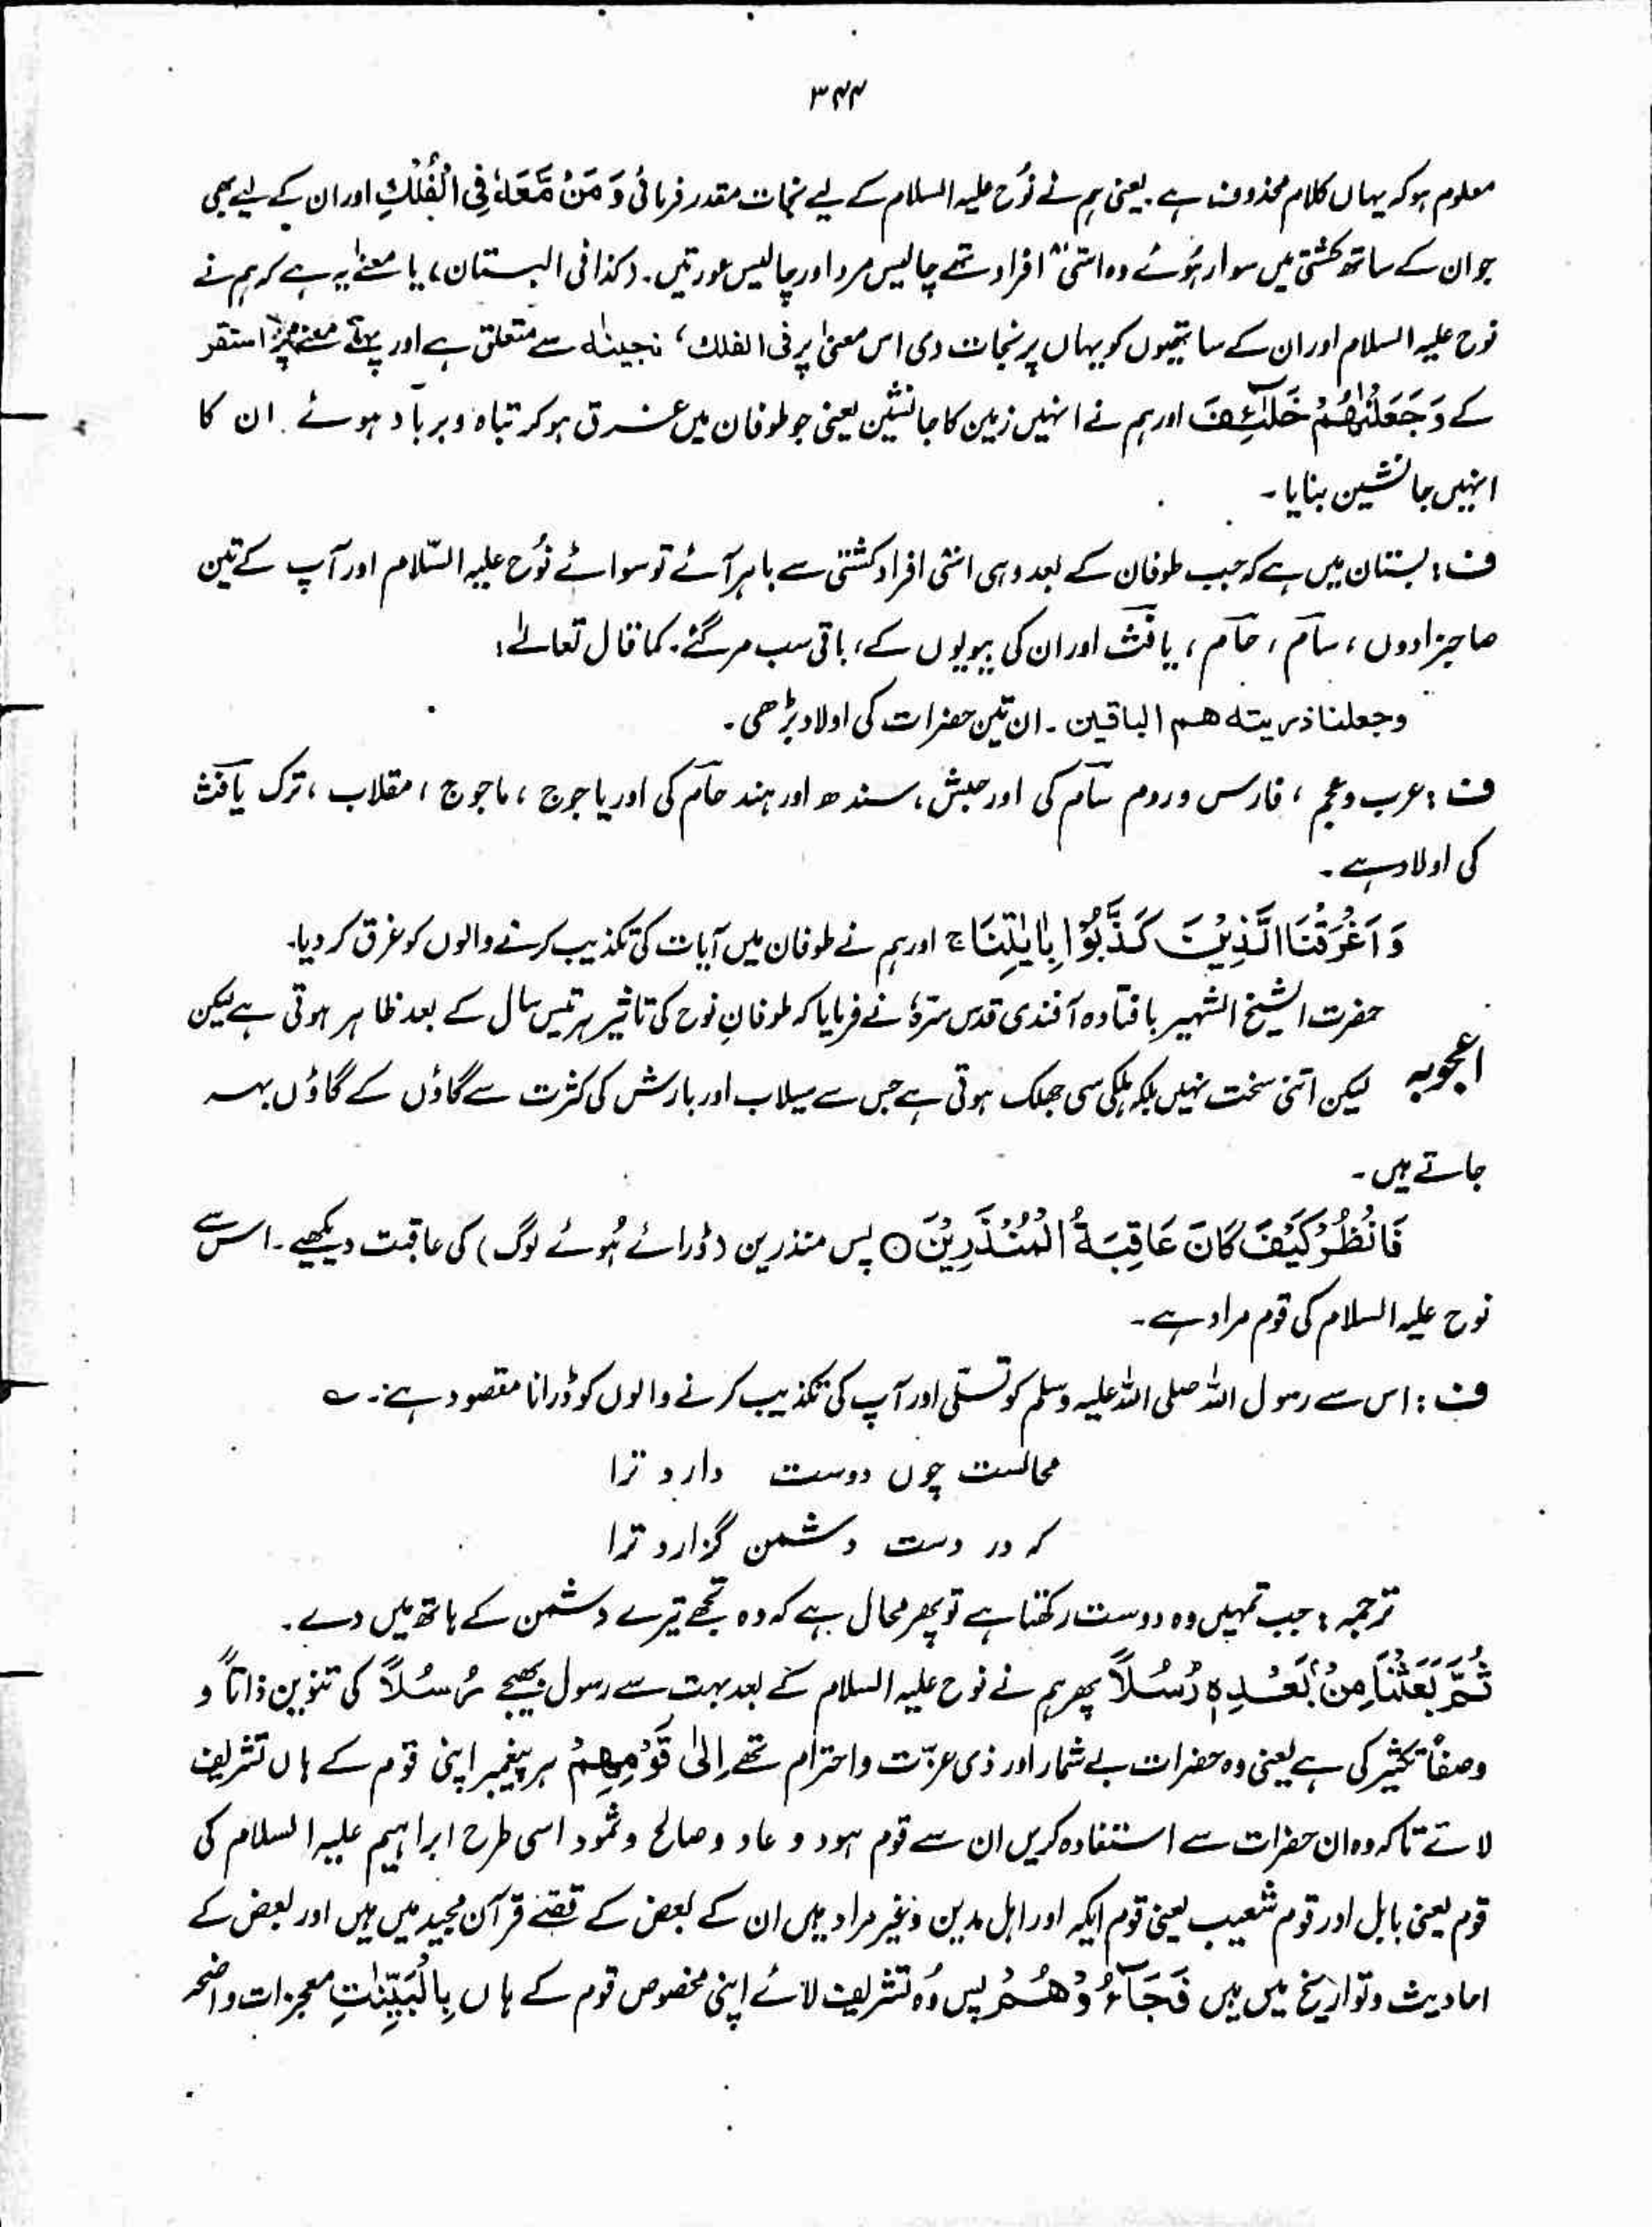 ۳۴۴
معلوم ہو کہ یہاں کلام محذوف ہے۔ یعنی ہم نے نوُح علیہ السلام کے لیے نجات مقدر فرمائی وَ مَنْ مَّعَهٗ فِی الْفُلْكِ اور ان کے لیے بھی
جو ان کے ساتھ کشتی میں سوار ہُوئے وہ اسّی ۸۰ افراد تھے چالیس مرد اور چالیس عورتیں۔ (کذا فی البستان) یا معنٰے یہ ہے کہ ہم نے
نوح علیہ السلام اور ان کے ساتھیوں کو یہاں پر نجات دی اس معنٰی پر فی الفلك، نجینٰه سے متعلق ہے اور پہلے معنے پر استقر
کے وَجَعَلْنٰهُمْ خَلٰٓئِفَ اور ہم نے انہیں زمین کا جانشین یعنی جو طوفان میں غرق ہو کر تباہ و برباد ہوئے۔ ان کا
انہیں جانشین بنایا۔
ف : بستان میں ہے کہ جب طوفان کے بعد وہی اسّی افراد کشتی سے باہر آئے تو سوائے نوُح علیہ السّلام اور آپ کے تین
صاحبزادوں ، سام ، حام ، یافث اور ان کی بیویوں کے، باقی سب مر گئے۔ کما قال تعالےٰ:
وجعلنا ذریته هم الباقین۔ ان تین حضرات کی اولاد بڑھی۔
ف : عرب و عجم ، فارس و روم سام کی اور حبش، سندھ اور ہند حام کی اور یاجوج ، ماجوج ، مقلاب ، ترک یافث
کی اولاد ہے۔
وَ اَغْرَقْنَا الَّذِیْنَ كَذَّبُوْا بِاٰیٰتِنَا ج اور ہم نے طوفان میں آیات کی تکذیب کرنے والوں کو غرق کر دیا۔
حضرت الشیخ الشہیر بافتادہ آفندی قدس سرّہٗ نے فرمایا کہ طوفانِ نوح کی تاثیر ہر تیس سال کے بعد ظاہر ہوتی ہے لیکن
اعجوبہ لیکن اتنی سخت نہیں بلکہ ہلکی سی جھلک ہوتی ہے جس سے سیلاب اور بارش کی کثرت سے گاؤں کے گاؤں بہہ
جاتے ہیں۔
فَانْظُرْ كَیْفَ كَانَ عَاقِبَةُ الْمُنْذَرِیْنَ ○ پس منذرین (ڈرائے ہُوئے لوگ) کی عاقبت دیکھیے۔ اس سے
نوح علیہ السلام کی قوم مراد ہے۔
ف : اس سے رسول اللہ صلی اللہ علیہ وسلم کو تسلّی اور آپ کی تکذیب کرنے والوں کو ڈرانا مقصود ہے۔ ؎
محالست چوں دوست دارد ترا
کہ در دست دشمن گزارد ترا
ترجمہ : جب تمہیں وہ دوست رکھتا ہے تو پھر محال ہے کہ وہ تجھے تیرے دشمن کے ہاتھ میں دے۔
ثُمَّ بَعَثْنَا مِنْۢ بَعْدِهٖ رُسُلًا پھر ہم نے نوح علیہ السلام کے بعد بہت سے رسول بھیجے رُسُلًا کی تنوین ذاتاً و
وصفاً تکثیر کی ہے یعنی وہ حضرات بے شمار اور ذی عزّت و احترام تھے اِلٰى قَوْمِهِمْ ہر پیغمبر اپنی قوم کے ہاں تشریف
لاتے تاکہ وہ ان حضرات سے استفادہ کریں ان سے قوم ہود و عاد و صالح و ثمود اسی طرح ابراہیم علیہ السلام کی
قوم یعنی بابل اور قوم شعیب یعنی قوم ایکہ اور اہل مدین وغیر مراد ہیں ان کے بعض کے قصّے قرآن مجید میں ہیں اور بعض کے
احادیث و تواریخ میں ہیں فَجَآءُوْهُمْ پس وُہ تشریف لائے اپنی مخصوص قوم کے ہاں بِالْبَیِّنٰتِ معجزات واضحہ